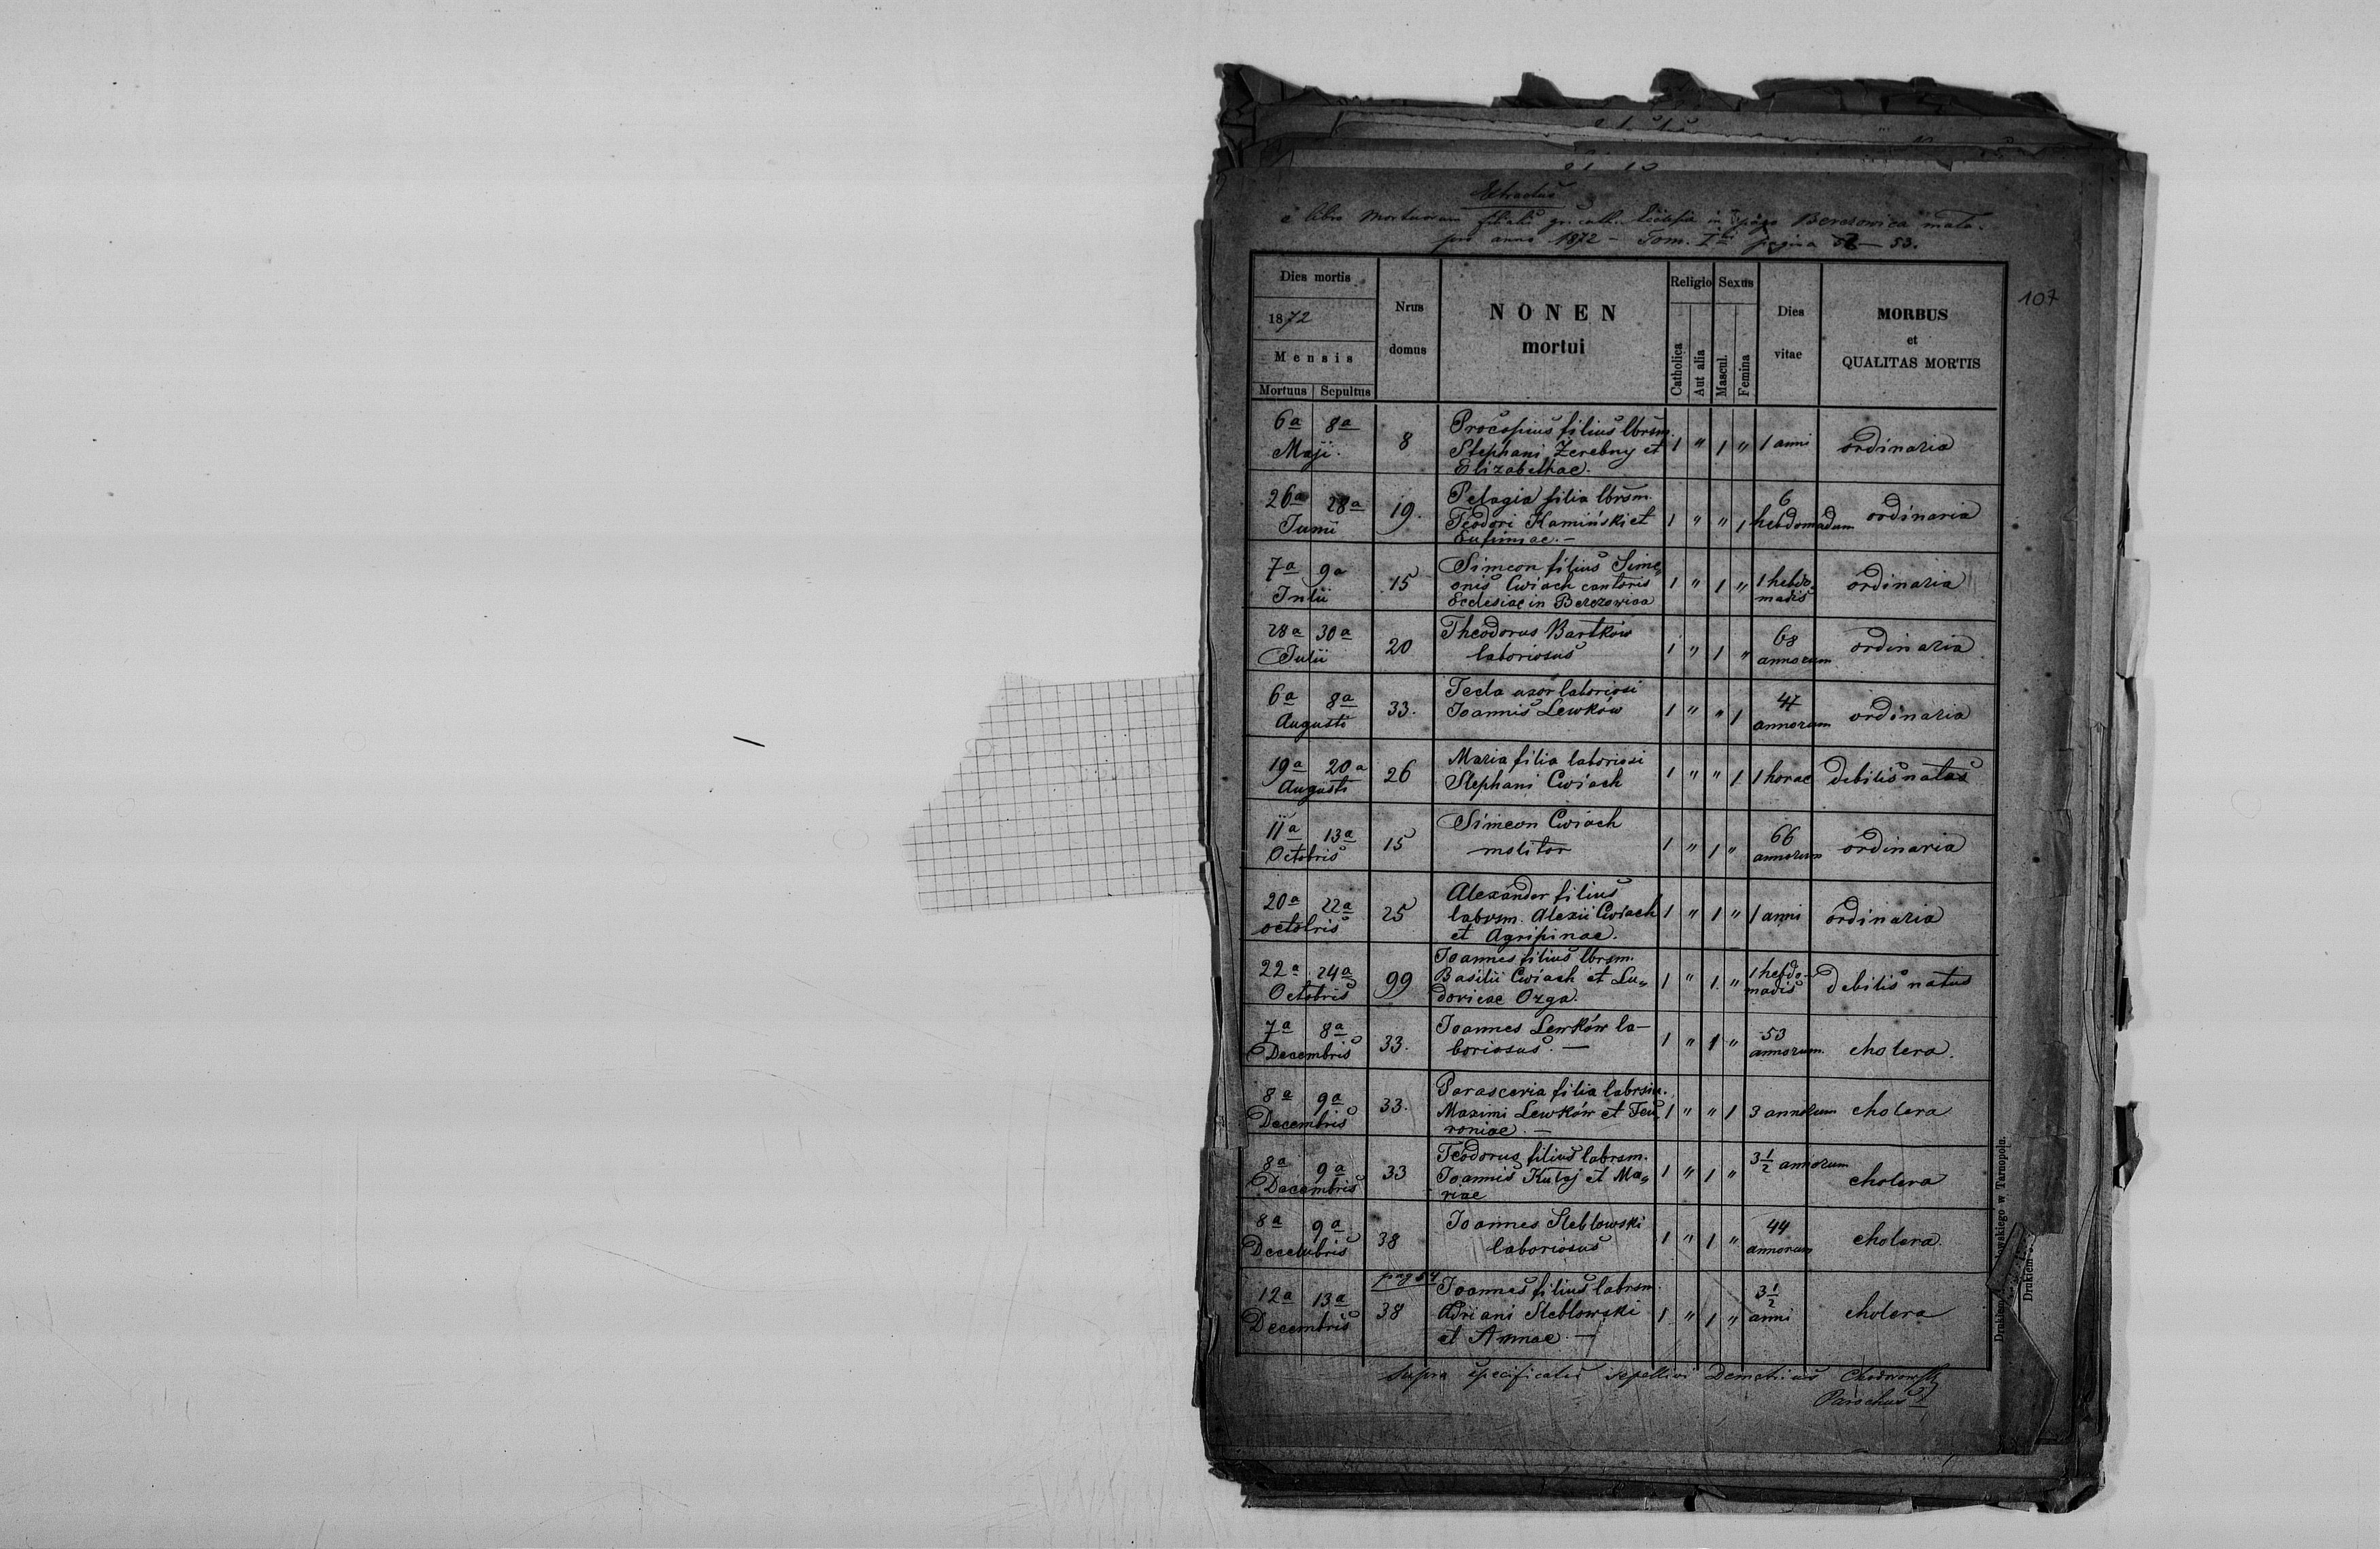 Extractus
e libro Mortuorum filialis gr. cath. Ecclesiae in pago Berezowica mała.
pro anno 1872 – Tom. I pagina 52 – 53.
107
Dies mortis
Nrus domus
NONEN mortui
Religio
Sexus
Dies vitae
MORBUS et QUALITAS MORTIS
1872
Mensis
Mortuus
Sepultus
Catholica
Aut alia
Mascul.
Femina
6a 8a
Maji.
8
Procopius filius lbrsm.
Stephani Żerebny et
Elizabethae.
1 " 1 "
1 anni
ordinaria
26a 28a
Junii
19.
Pelagia filia lbrsm.
Teodori Kamiński et
Eufimiae. –
1 " " 1
6
hebdomadum
ordinaria
7a 9a
Julii
15
Simeon filius Sime„
onis Cwiach cantoris
Ecclesiae in Berezowica
1 " 1 "
1 hebdo„
madis
ordinaria
28a 30a
Julii
20
Theodorus Bartków
laboriosus
1 " 1 "
68
annorum
ordinaria
6a 8a
Augusti
33.
Tecla uxor laboriosi
Joannis Lewków
1 " " 1
47
annorum
ordinaria
19a 20a
Augusti
26
Maria filia laboriosi
Stephani Cwiach
1 " " 1
1 horae
debilis natus
11a 13a
Octobris
15
Simeon Cwiach
molitor
1 " 1 "
66
annorum
ordinaria
20a 22a
octobris
25
Alexander filius
labrsm. Alexii Cwiach
et Agripinae.
1 " 1 "
1 anni
ordinaria
22a 24a
Octobris
99
Joannes filius lbrsm.
Basilii Cwiach et Lu„
doricae Ozga.
1 " 1 "
1 hebdo-
madis
debilis natus
7a 8a
Decembris
33.
Joannes Lewków la–
boriosus. –
1 " 1 "
53
annorum.
cholera.
8a 9a
Decembris
33.
Parasceria filia labrsm.
Maximi Lewków et Feu„
roniae. –
1 " " 1
3 annorum
cholera
8a 9a
Decembris
33
Teodorus filius labrsm.
Joannis Kulaj et Ma„
riae
1 " 1 "
3 1/2 annorum
cholera
8a 9a
Decembris
38
Joannes Steblowski
laboriosus
1 " 1 "
44
annorum
cholera.
pag 54
12a 13a
Decembris
38
Joannes filius labrsm.
Adriani Steblowski
et Annae. –
1 " 1 "
3 1/2
anni
cholera
supra specificatos sepelivi Demetrius
Parochus
w Tarnopolu.
Drukiem